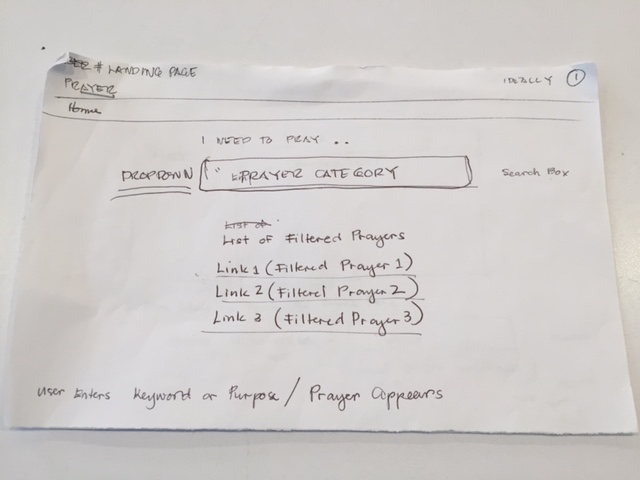 # LANDING PAGE
PRAYER
IDEALLY 1
Home
I NEED TO PRAY ..
DROPDOWN " PRAYER CATEGORY
Search Box
List of
List of Filtered Prayers
Link 1 (Filtered Prayer 1)
Link 2 (Filterel Prayer 2)
Link 3 (Filtered Prayer 3)
User Enters Keyword or Purpose / Prayer Appears